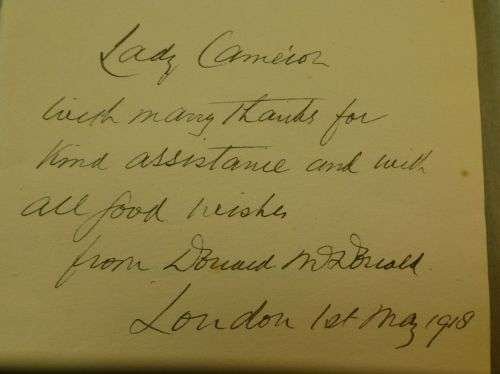 Lady Cameron
with many thanks for
kind assistance and with
all good wishes
from Donald McDonald
London 1st May 1918